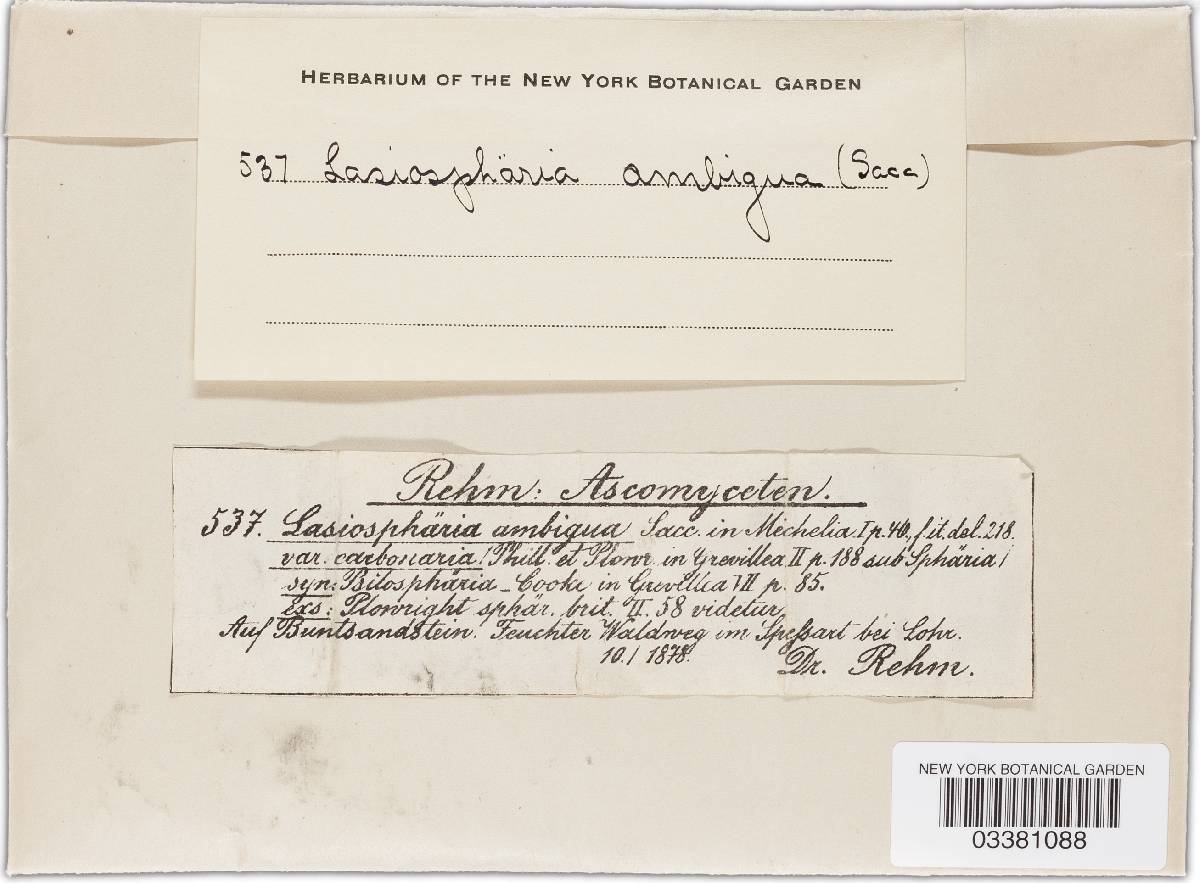 HERBARIUM OF THE NEW YORK BOTANICAL GARDEN
537 Lasiosphäria ambigua (Sacc)
Rehm: Ascomyceten.
537. Lasiosphäria ambigua Sacc. in Michelia I p. 46, f. it. del. 218.
var. carbonaria! Phill. et Plowr. in Grevillea II p. 188 sub Sphäria!
syn: Bilosphäria - Cooke in Grevillea VII p. 85.
exs: Plowright sphär. brit. II. 58 videtur.
Auf Buntsandstein. Feuchter Waldweg im Speßart bei Lohr.
10./ 1878.
Dr. Rehm.
NEW YORK BOTANICAL GARDEN
03381088